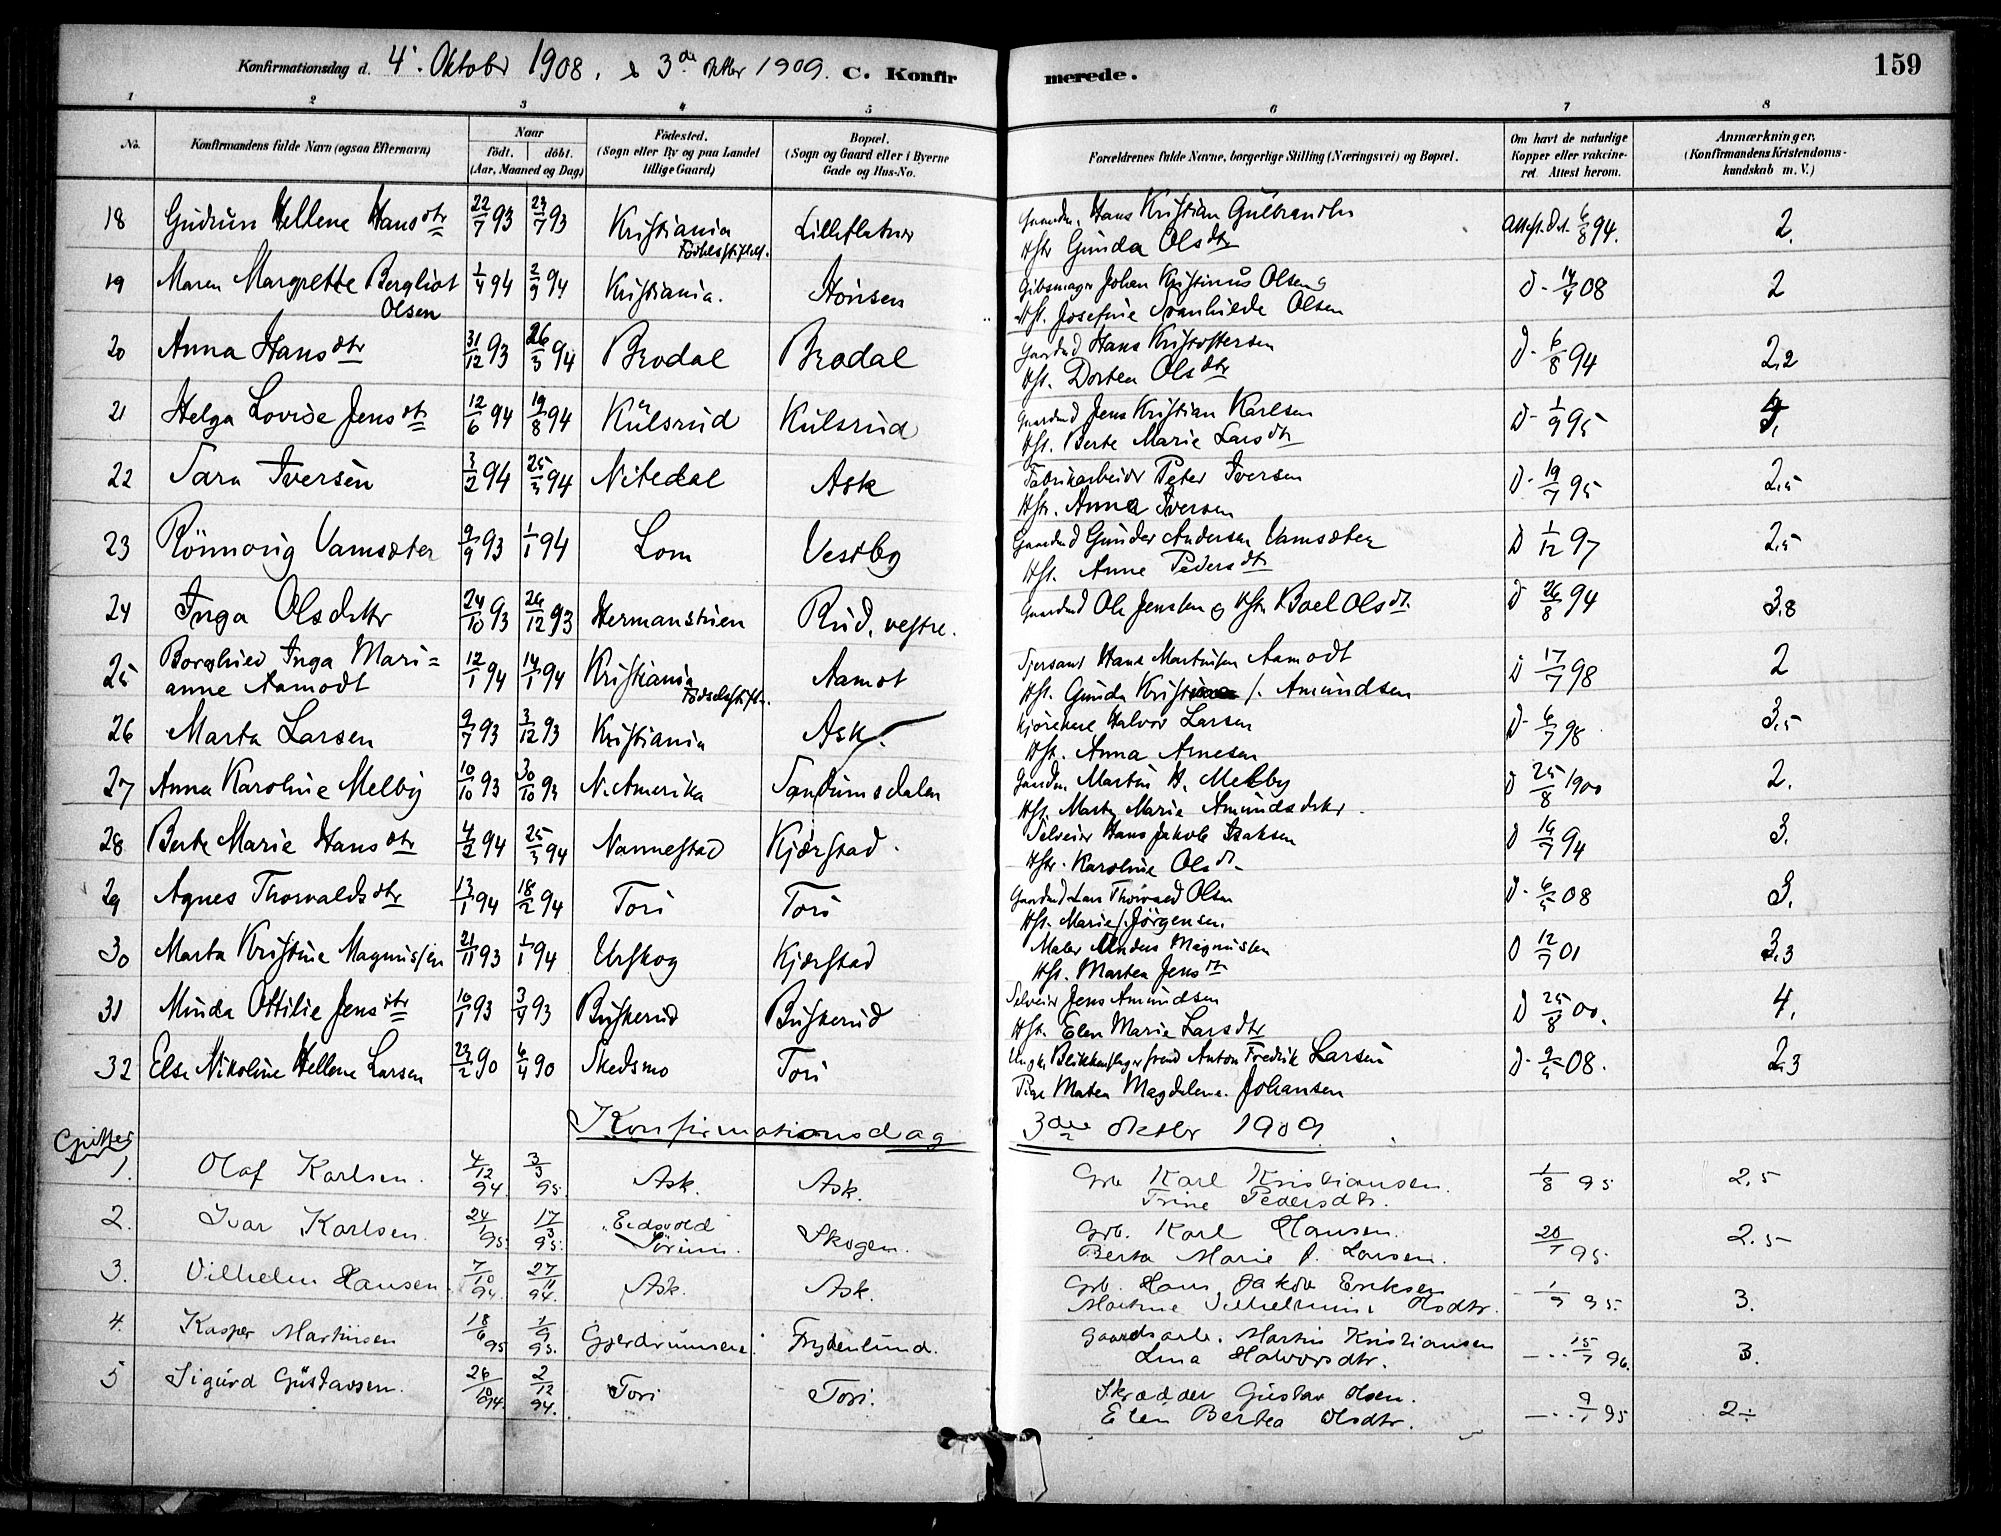 Konfirmationsdag d. 4: Oktober 1908. & 3de oktbr 1909. C. Konfirmerede. 159
1 2 3 4 5 6 7 8
No.
Konfirmandens fulde Navn (ogsaa Efternavn)
Naar
födt. döbt.
(Aar, Maaned og Dag)
Födested.
(Sogn eller By og paa Landet tillige Gaard)
Bopæl.
(Sogn og Gaard eller i Byerne Gade og Hus-No.
Forældrenes fulde Navne, borgerlige Stilling (Næringsvei) og Bopæl.
Om havt de naturlige Kopper eller vakcineret. Attest herom.
Anmærkninger.
(Konfirmandens Kristendomskundskab m. V.)
18 Gudrun Hellene Hansdtr 22/7 93 23/7 93 Kristiania Lilleflatner Hans Kristian Gulbrandsen Attest. Dat. 6/8 94. 2.
Fødselsstiftels. Hstr Gunda Olsdtr
19 Maren Margrette Bergliot 1/4 94 2/9 94 Kristiania. Hönsen Gibsmager Johan Kristinus Olsen D - 14/4 08 2
Olsen Hst. Josefine Svanhilde Olsen
20 Anna Hansdtr 31/12 93 26/3 94 Brodal Brodal Gaardmd Hans Kristoffersen D - 6/8 94 2,2
Hst. Dorthea Olsdtr
21 Helga Lovise Jensdtr 12/6 94 19/8 94 Kulsrud Kulsrud Gaardmd Jens Kristian Karlsen D - 1/9 95
Hst. Berte Marie Larsdtr
22 Sara Iversen 3/2 94 25/3 94 Nitedal Ask Fabrikarbeider Peter Iversen D - 19/7 95 2,5
Hstr. Anna Iversen
23 Rönnovig Vamsæter 9/9 93 1/1 94 Lom Vestby Gaardmd Gunder Andersen Vamsæter D 1/12 97 2,5
Hst. Anne Pedersdtr
24 Inga Olsdatter 24/10 93 26/12 93 Hermanstuen Rud, vestre. Gaardmd Ole Jensen og Hstr Boel Olsdt. D 26/8 94 3,8
25 Borghild Inga Mari= 12/1 94 14/1 94 Kristiania Aamot Sjersant Hans Martinsen Aamodt D 17/7 98 2
anne Aamodt Fødselsstift. Hst. Gunda f. Amundsen
26 Marta Larsen 9/7 93 3/12 93 Kristiania Ask. Halvor Larsen D - 6/7 98 3,5
Hst. Anna Arnesen
27 Anna Karoline Melby 10/10 93 30/10 93 N. Amerika Sandumsdalen Gaardm. Martin H. Melby D 25/8 1900 2.
Hst. Marthe Marie Amundsdatter.
28 Berte Marie Hansdtr 4/2 94 25/3 94 Nannestad Kjærstad. Selveier Hans Jakob Isaksen D 16/7 94 3.
Hstr. Karoline Olsdt.
29 Agnes Thorvaldsdtr 13/1 94 18/2 94 Tori Tori Gaardmd Lars Thorvald Olsen D - 6/5 08 3.
Hst. Marie f. Jörgensen.
30 Marta Kristine Magnussen 21/11 93 1/1 94 Urskog Kjærstad Maler Anders Magnussen D 12/7 01 3,3
Hst. Marten Jensdt
31 Minda Ottilie Jensdtr 10/1 93 3/4 93 Buskerud Buskerud Selveier Jens Amundsen D 25/8 00. 4.
Hst. Elen Marie Larsdtr
32 Else Nikoline Hellene Larsen 23/2 90 6/4 90 Skedsmo Tori Ungk. Blikkenslagersvend Anton Fredrik Larsen D - 9/5 08. 2.3
Pige Maten Magdalena. Johansen
Konfirmationsdag 3die oktbr 1909
Gutter
1. Olaf Karlsen. 4/12 94. 3/3 95. Ask. Ask. Grb Karl Kristiansen. 1/8 95 2,5
Trine Pedersdtr.
2. Ivar Karlsen. 24/1 95 17/3 95. Eidsvold Skogen. Grb. Karl Hansen. 20/7 95 2.5
Sörum. Berta Marie f. Larsen.
3. Vilhelm Hansen. 7/10 94. 27/11 94. Ask. Ask. Grb. Hans Jakob Eriksen - 1/9 95. 3.
Martine Vilhelmine Olsdtr.
4. Kasper Martinsen 18/6 95 1/9 95. Gjerdrumseie. Frydenlund. Gaardsarb. Martin Kristiansen —.. 15/7 96. 3.
Lina Halvorsdtr.
5 Sigurd Gustavsen. 26/10 94. 2/12 94. Tori Tori. Skrædder Gustav Olsen. —.. 9/7 95 2÷
Elen Bertea Olsdtr.